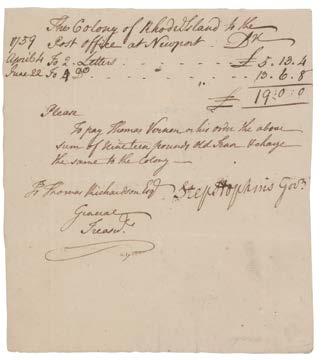 The Colony of Rhode Island to the
1759 Post Office at Newport Dr
April 4 To 2 Letters £ 5.13.4
June 22 To 4 Do 13.6.8
£ 19:0:0
Please
To pay Thomas Vernon or his order the above
sum of nineteen pounds old Tenr & charge
the same to the Colony
To Thomas Richardson Esqr Step Hopkins Govr
General
Treasr